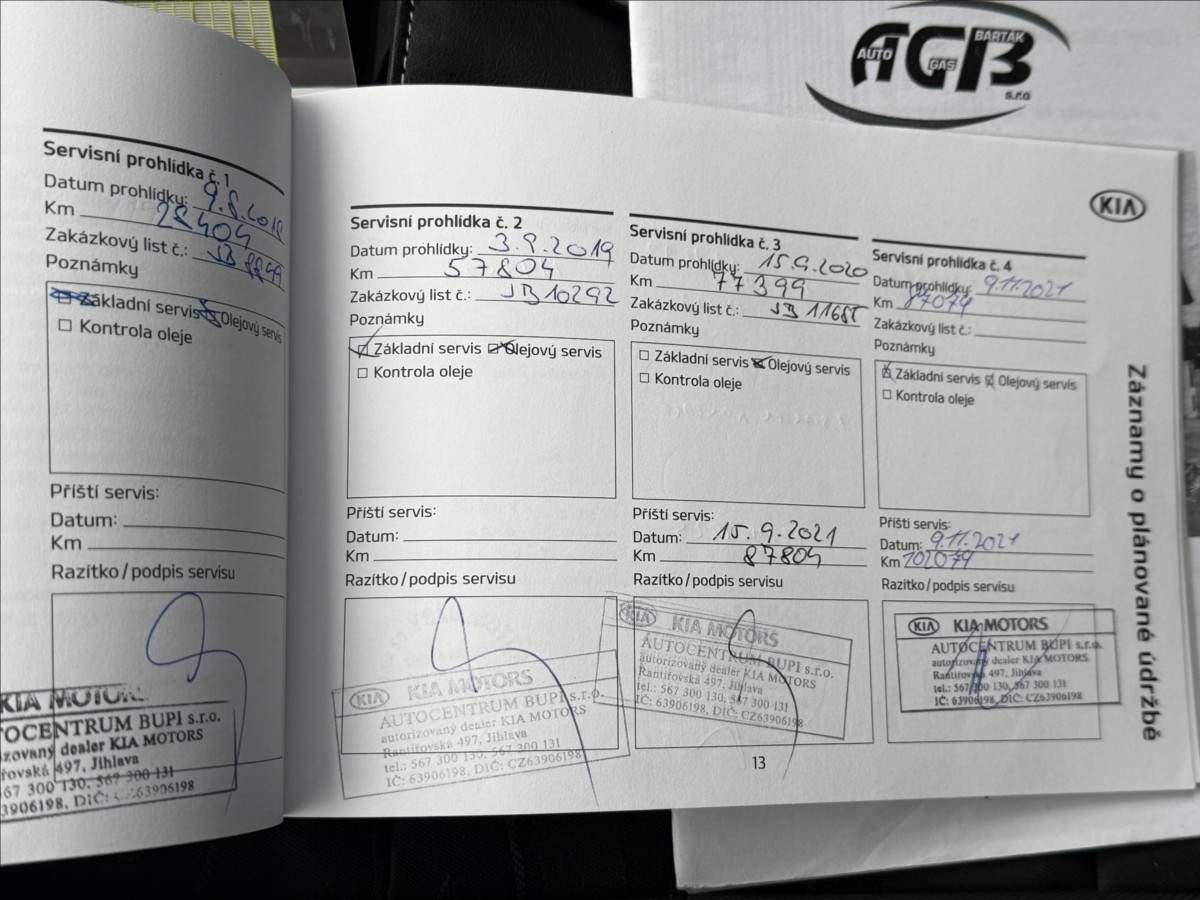 AUTO AGB BARTÁK
GAS
s.r.o
KIA
Servisní prohlídka č. 1
Datum prohlídky: 9.8.2018
Km 28404
Zakázkový list č.: JB
Poznámky
Základní servis Olejový servis
Kontrola oleje
Příští servis:
Datum:
Km
Razítko/podpis servisu
KIA MOTORS
AUTOCENTRUM BUPI s.r.o.
autorizovaný dealer KIA MOTORS
Rantířovská 497, Jihlava
567 300 130, 567 300 131
63906198, DIČ: CZ63906198
Servisní prohlídka č. 2
Datum prohlídky: 3.9.2019
Km 57804
Zakázkový list č.: JB10292
Poznámky
Základní servis Olejový servis
Kontrola oleje
Příští servis:
Datum:
Km
Razítko/podpis servisu
KIA KIA MOTORS
AUTOCENTRUM BUPI s.r.o.
autorizovaný dealer KIA MOTORS
Rantířovská 497, Jihlava
tel.: 567 300 130, 567 300 131
IČ: 63906198, DIČ: CZ63906198
Servisní prohlídka č. 3
Datum prohlídky: 15.9.2020
Km 77399
Zakázkový list č.:
Poznámky
Základní servis Olejový servis
Kontrola oleje
Příští servis:
Datum: 15.9.2021
Km 87804
Razítko/podpis servisu
KIA KIA MOTORS
AUTOCENTRUM BUPI s.r.o.
autorizovaný dealer KIA MOTORS
Rantířovská 497, Jihlava
tel.: 567 300 130, 567 300 131
IČ: 63906198, DIČ: CZ63906198
Servisní prohlídka č. 4
Datum prohlídky: 9.11.2021
Km 87079
Zakázkový list č.:
Poznámky
Základní servis Olejový servis
Kontrola oleje
Příští servis:
Datum: 9.11.2021
Km 102079
Razítko/podpis servisu
KIA KIA MOTORS
AUTOCENTRUM BUPI s.r.o.
autorizovaný dealer KIA MOTORS
Rantířovská 497, Jihlava
tel.: 567 300 130, 567 300 131
IČ: 63906198, DIČ: CZ63906198
Záznamy o plánované údržbě
13